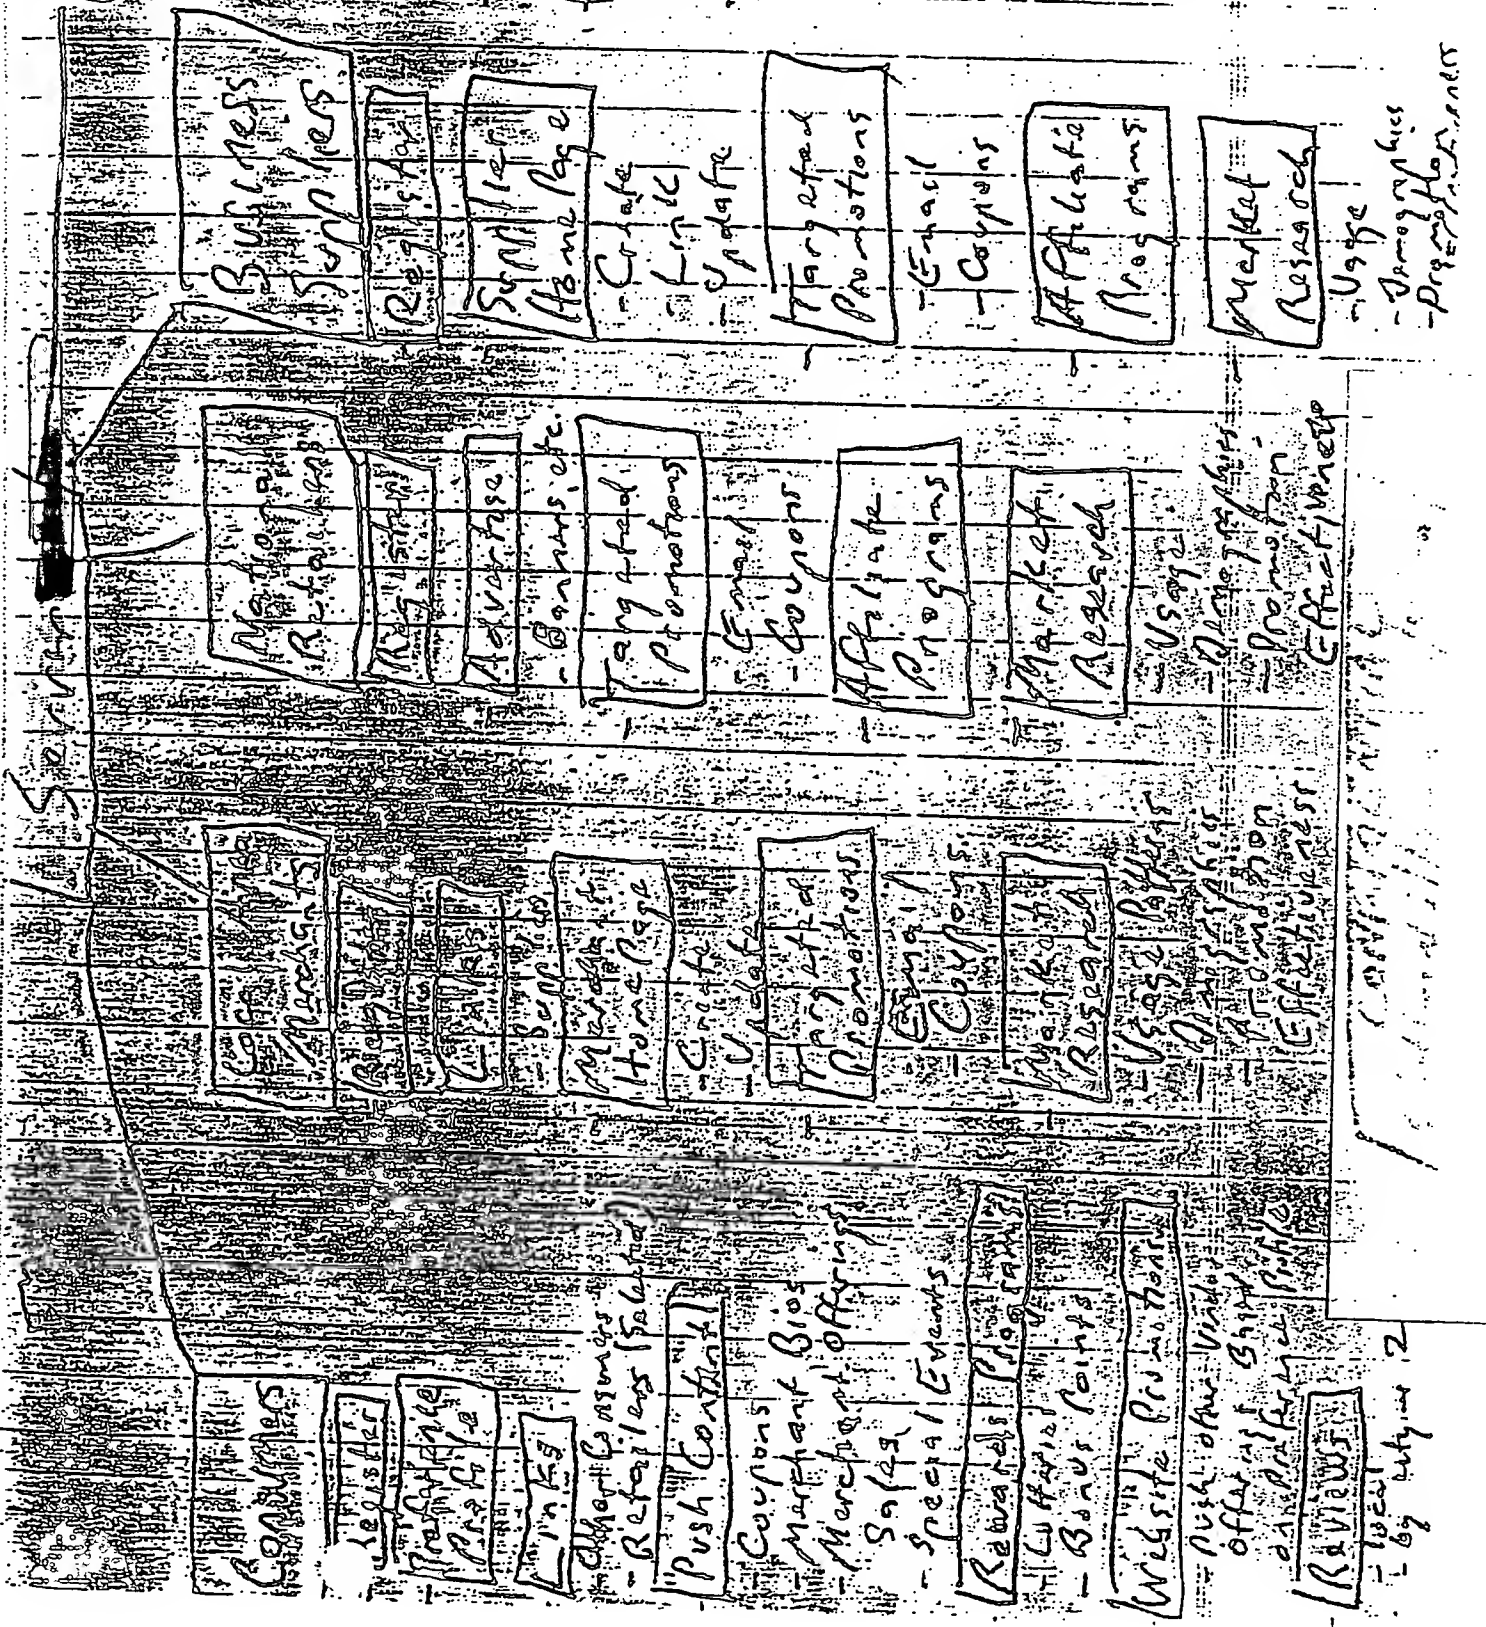 Consumers
Register
Preference
Profile
Links
- Other Consumers
- Retailers Selected
Push Content
- Coupons
- Merchant Bios
- Merchant Offerings
Sales
- Special Events
Rewards Programs
- Lotteries
- Bonus Points
Website Promotions
- Push other Vendor
Offerings Based
on Preference Profile
Reviews
- local
- by city
Merchants
Register
Merchant
Home Page
- Create
- Update
Targeted
Promotions
- Email
- Coupons
Market
Research
- Usage Patterns
- Demographics
- Promotion
Effectiveness
National
Retailers
Register
Advertise
- Banners, etc.
Targeted
Promotions
- Email
- Coupons
Affiliate
Programs
Market
Research
- Usage
- Demographics
- Promotion
Effectiveness
Business
Suppliers
Register
Supplier
Home Page
- Create
- Link
- Update
Targeted
Promotions
- Email
- Coupons
Affiliate
Programs
Market
Research
- Usage
- Demographics
- Promotion